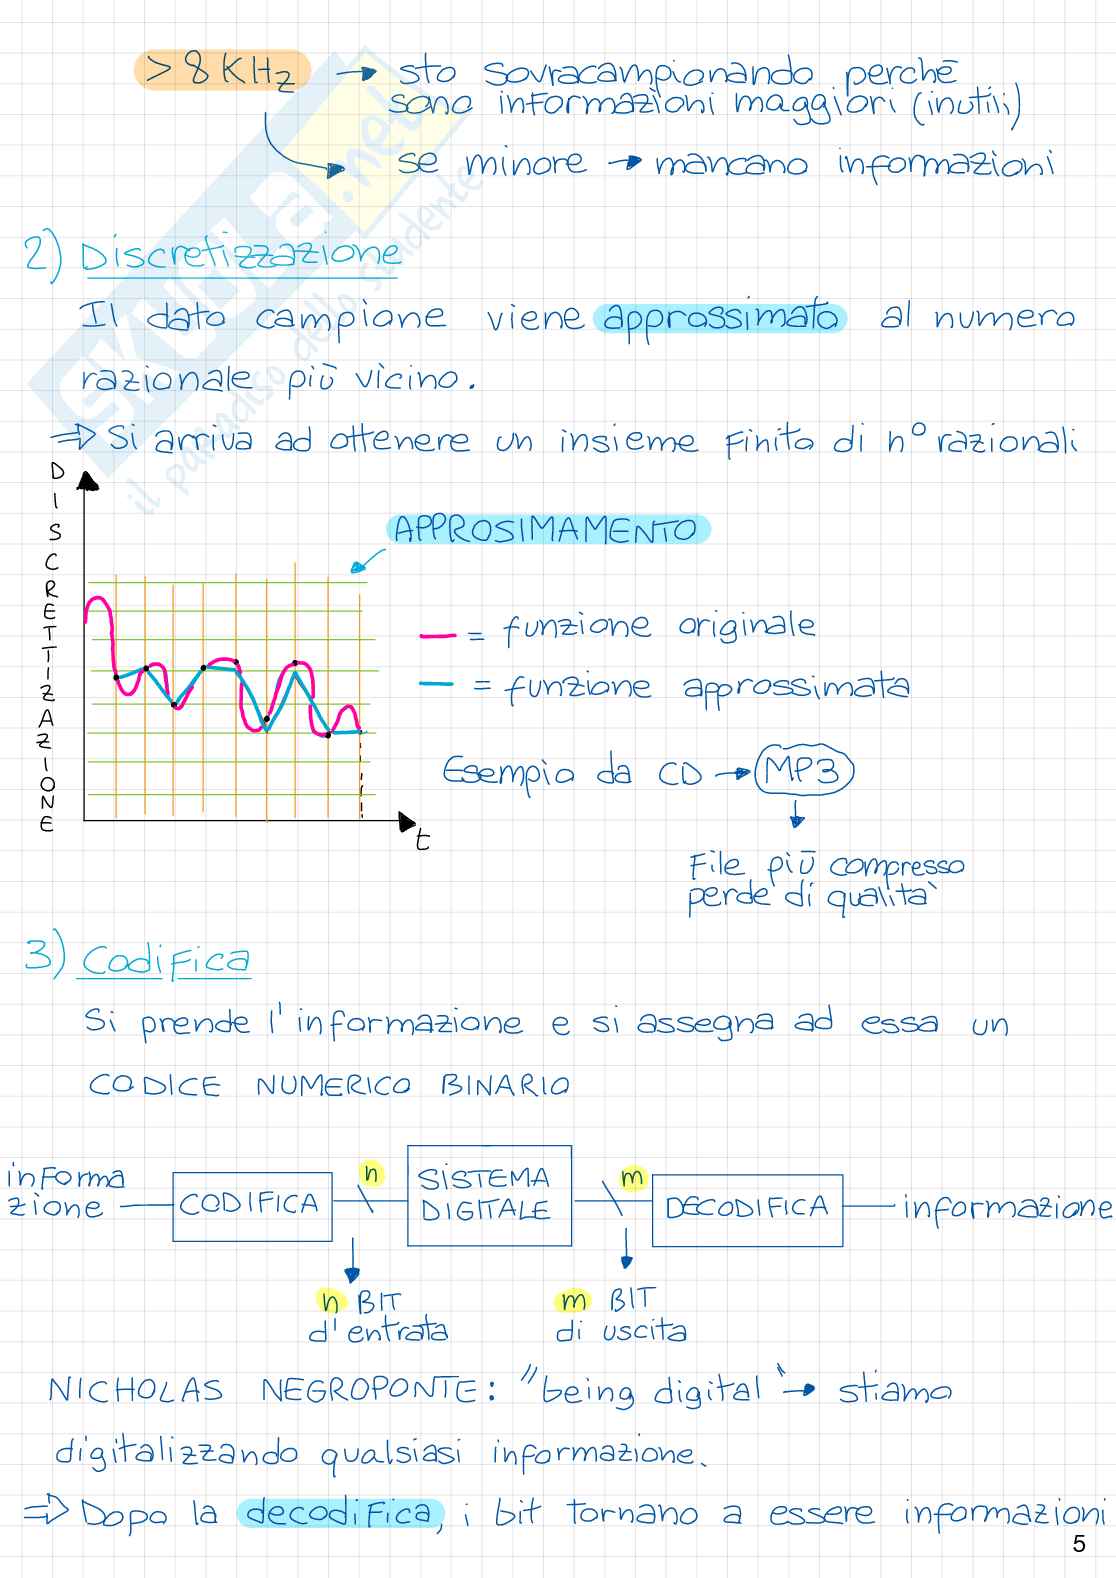 > 8 KHz → sto sovracampionando perchē
sono informazioni maggiori (inutili)
se minore → mancano informazioni
2) Discretizzazione
Il dato campione viene approssimato al numero
razionale piū vicino.
⇒ Si arriva ad ottenere un insieme finito di n° razionali
DISCRETTIZAZIONE
APPROSIMAMENTO
— = funzione originale
— = funzione approssimata
Esempio da CD → MP3
t
File piū compresso
perde di qualità
3) Codifica
Si prende l'informazione e si assegna ad essa un
CODICE NUMERICO BINARIO
informa
zione
CODIFICA
n
SISTEMA
DIGITALE
m
DECODIFICA
informazione
n BIT
d'entrata
m BIT
di uscita
NICHOLAS NEGROPONTE: "being digital" → stiamo
digitalizzando qualsiasi informazione.
⇒ Dopo la decodifica, i bit tornano a essere informazioni
5
SKUOLA.net
il paradiso dello studente